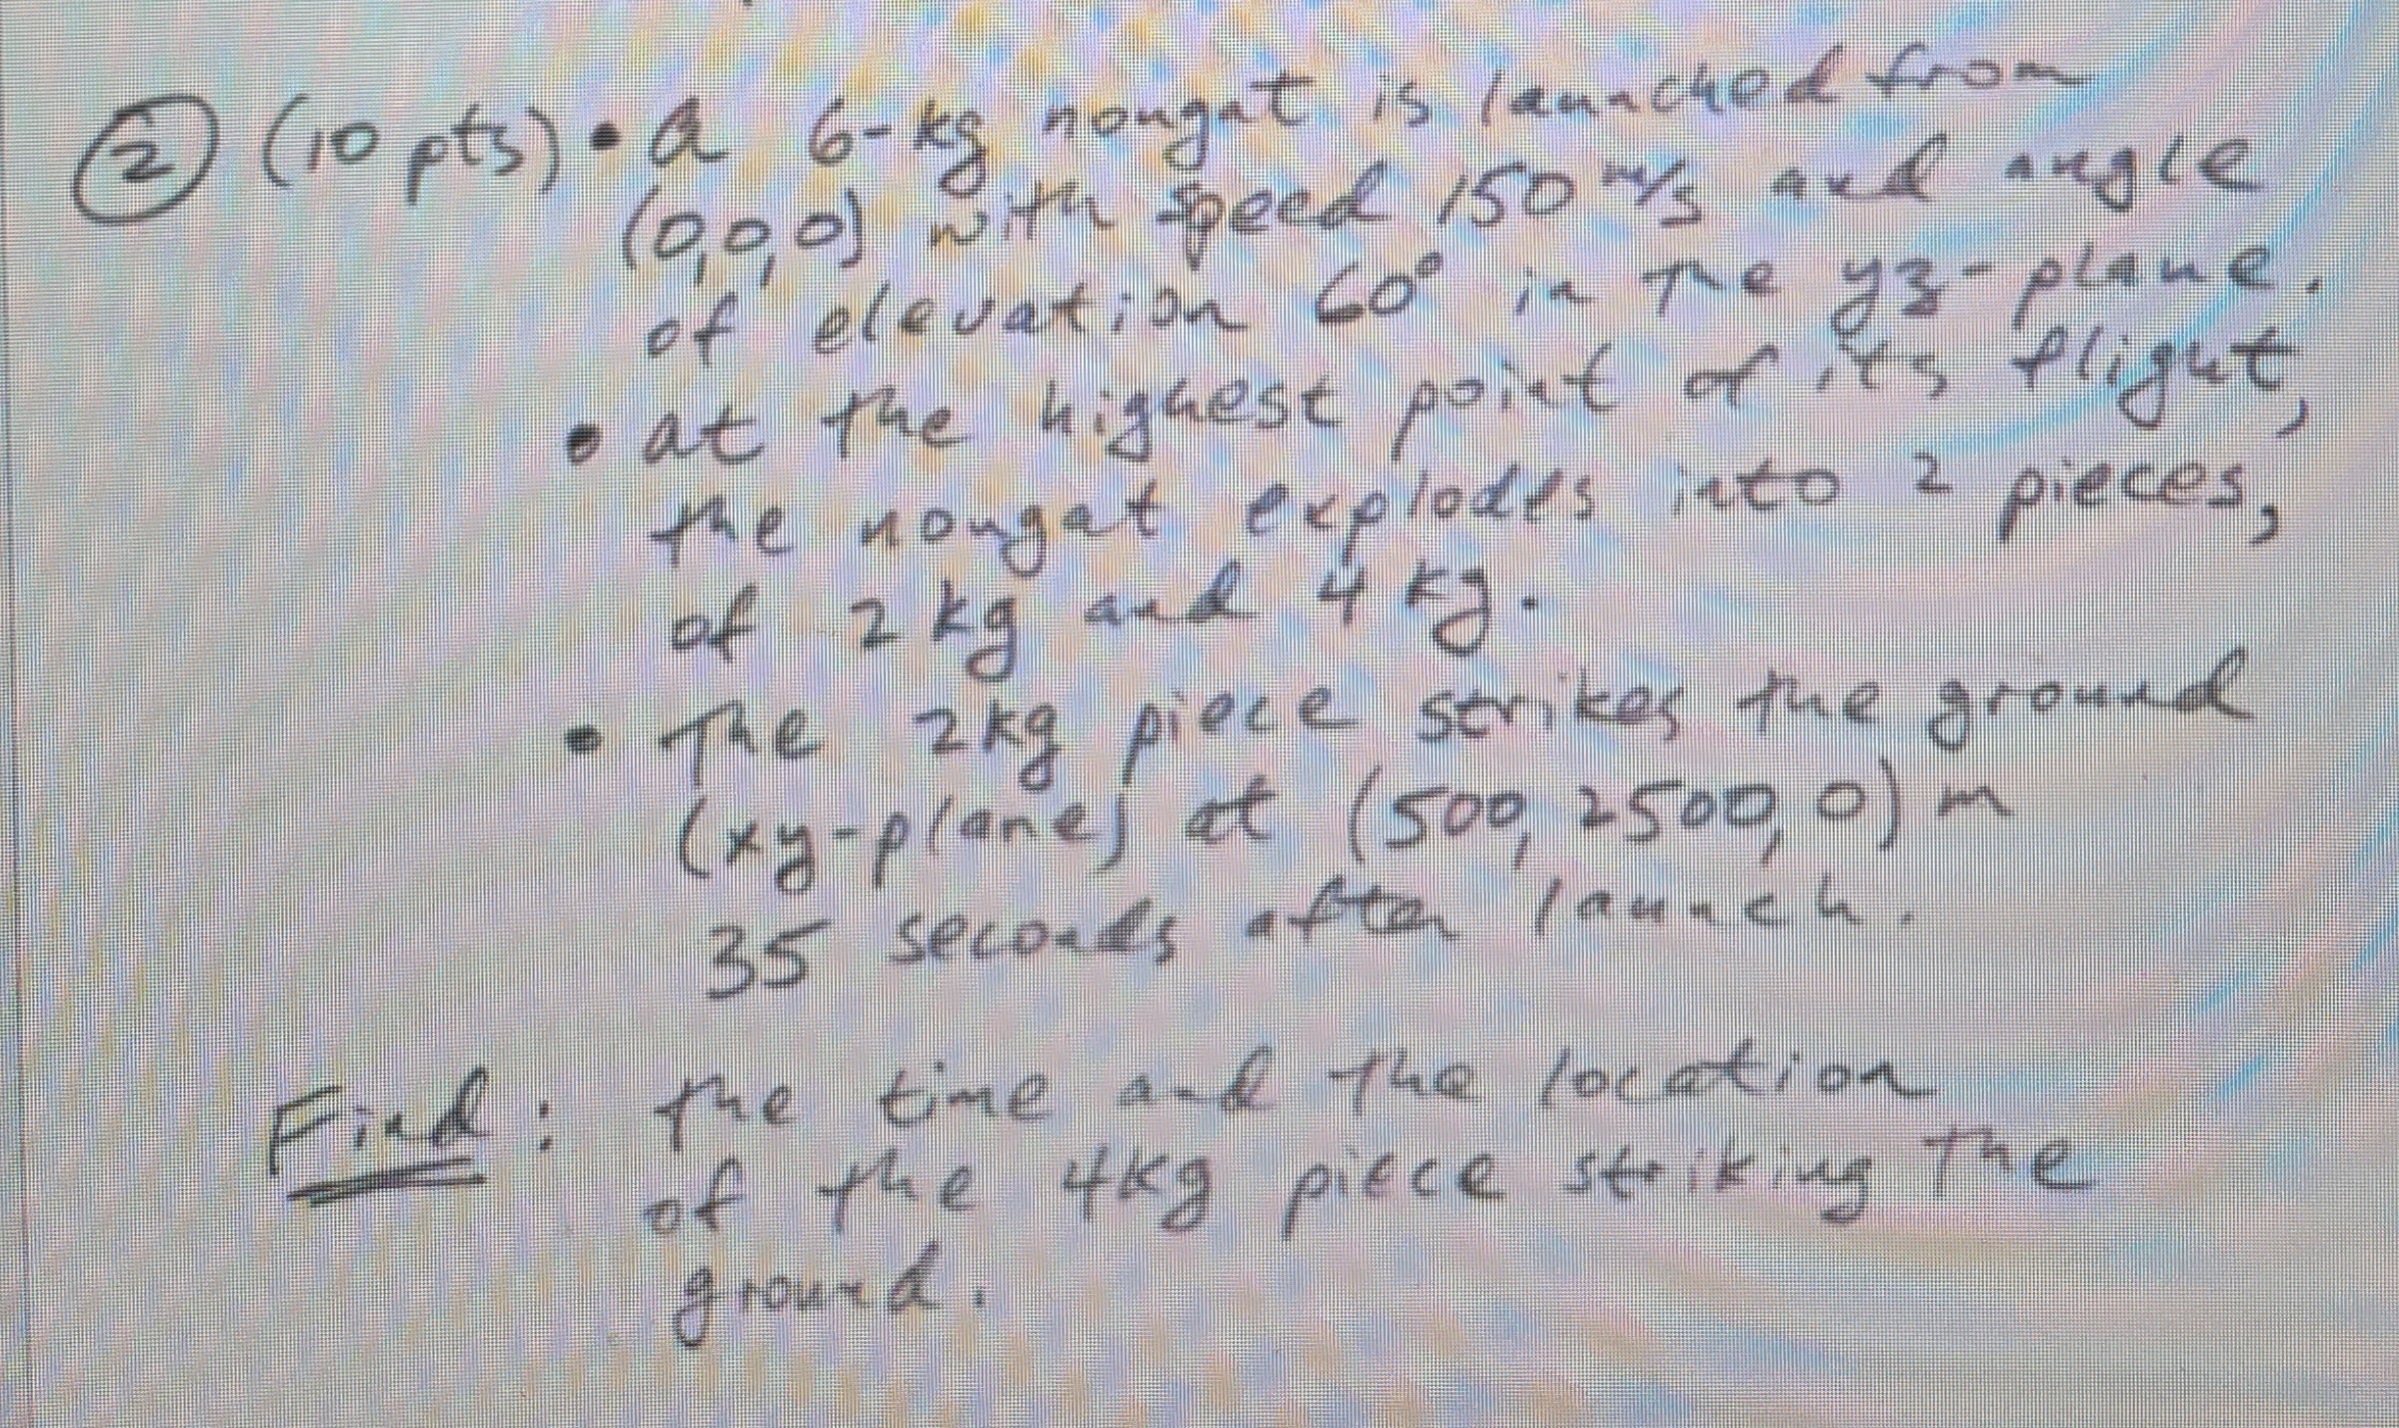 ② (10 pts) • A 6-kg nougat is launched from
(0,0,0) with speed 150 m/s and angle
of elevation 60° in the yz-plane.
• at the highest point of its flight,
the nougat explodes into 2 pieces,
of 2 kg and 4 kg.
• The 2kg piece strikes the ground
(xy-plane) at (500, 2500, 0) m
35 seconds after launch.
Find: the time and the location
of the 4kg piece striking the
ground.